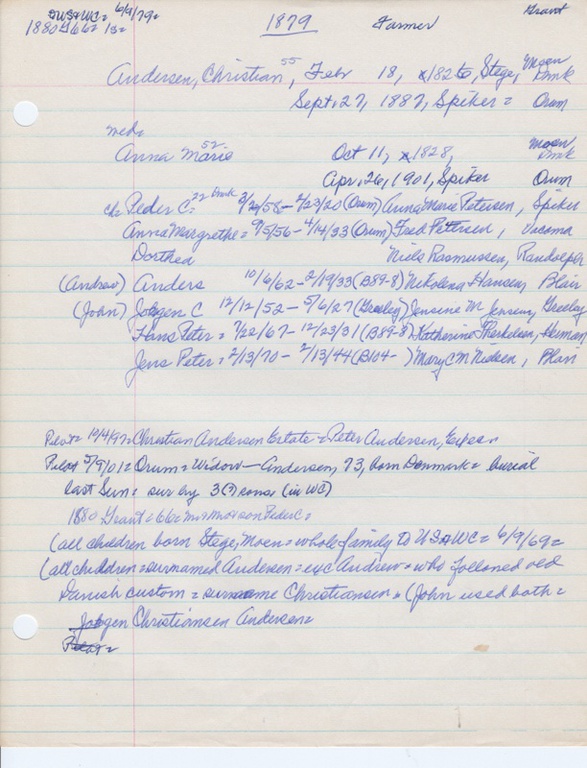 US&WC= 6/9/79= 1879 Farmer Grant
1880 G 66= 13=
Andersen, Christian 55, Feb 18, x1826, Stege, Moen Dmk
Sept. 27, 1887, Spiker = Orum
wed=
Anna Marie 52 Oct 11, x1828, Moen Dmk
Apr. 26, 1901, Spiker Orum
ch= Peder C. 22 Dmk 2/24/58 - 2/23/20 (Orum) Anna Marie Petersen, Spiker
Anna Margrethe = 9/5/56 - 4/14/33 (Orum) Fred Petersen, Uncama
Dorthea Niels Rasmussen, Randolph
(Andrew) Anders 10/6/62 - 2/19/33 (B89-8) Nikolena Hansen, Blair
(John) Jorgen C 12/12/52 - 5/6/27 (Greeley) Jensine M Jensen, Greeley
Hans Peter = 7/22/67 - 12/23/31 (B89-8) Katherine Therkelsen, Herman
Jens Peter = 2/13/70 - 2/13/44 (B104- ) Mary C M Nielsen, Blair
Pilot = 10/4/97 = Christian Andersen Estate = Peter Andersen, Exec =
Pilot 5/9/01 = Orum = Widow - Andersen, 73, born Denmark = burial
last Sun = sur by 3 (?) sons (in WC)
1880 Grant = 66 = Mr & Mrs & son Peder C =
(all children born Stege, Moen = whole family to US & WC = 6/9/69 =
(all children = surnamed Andersen = exc Andrew = who followed old
Danish custom = surname Christiansen = (John used both =
Jorgen Christiansen Andersen =
Pilot =